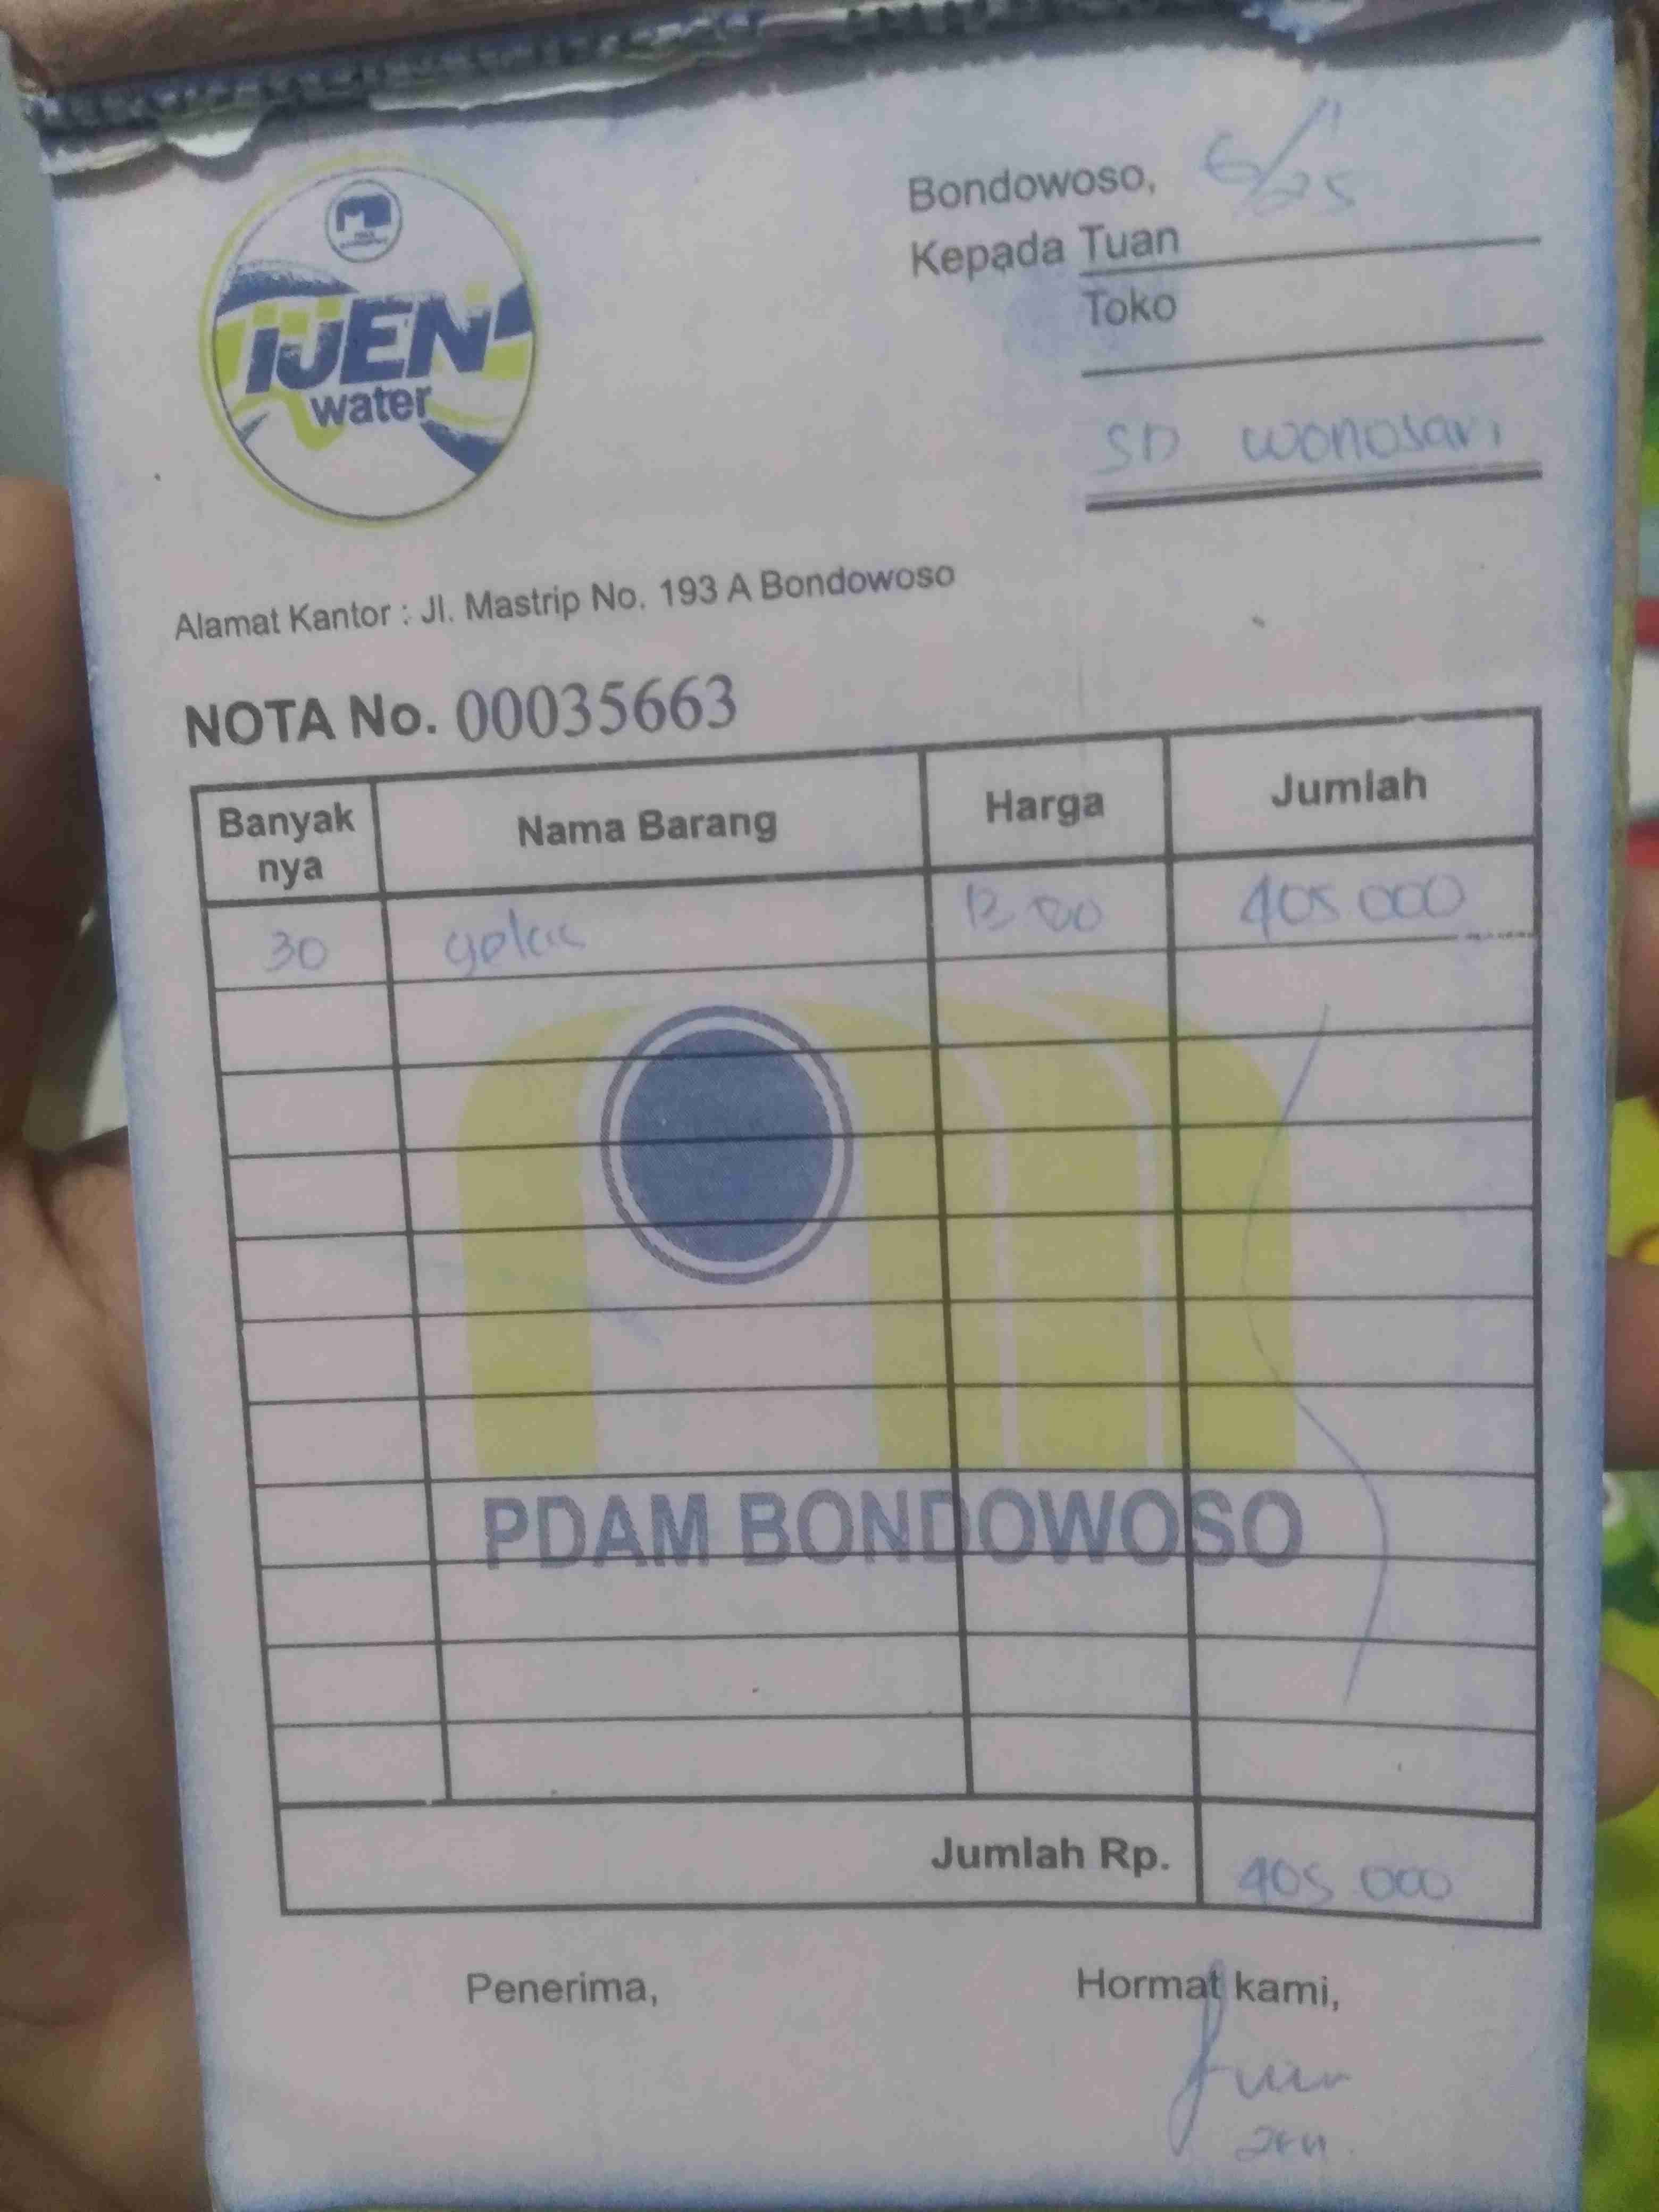 IJEN
water
Bondowoso, 6/11/25
Kepada Tuan
Toko
SD Wonosari
Alamat Kantor : Jl. Mastrip No. 193 A Bondowoso
NOTA No. 00035663
Banyak nya Nama Barang Harga Jumlah
30 gelas 405 000
PDAM BONDOWOSO
Jumlah Rp. 405 000
Penerima, Hormat kami,